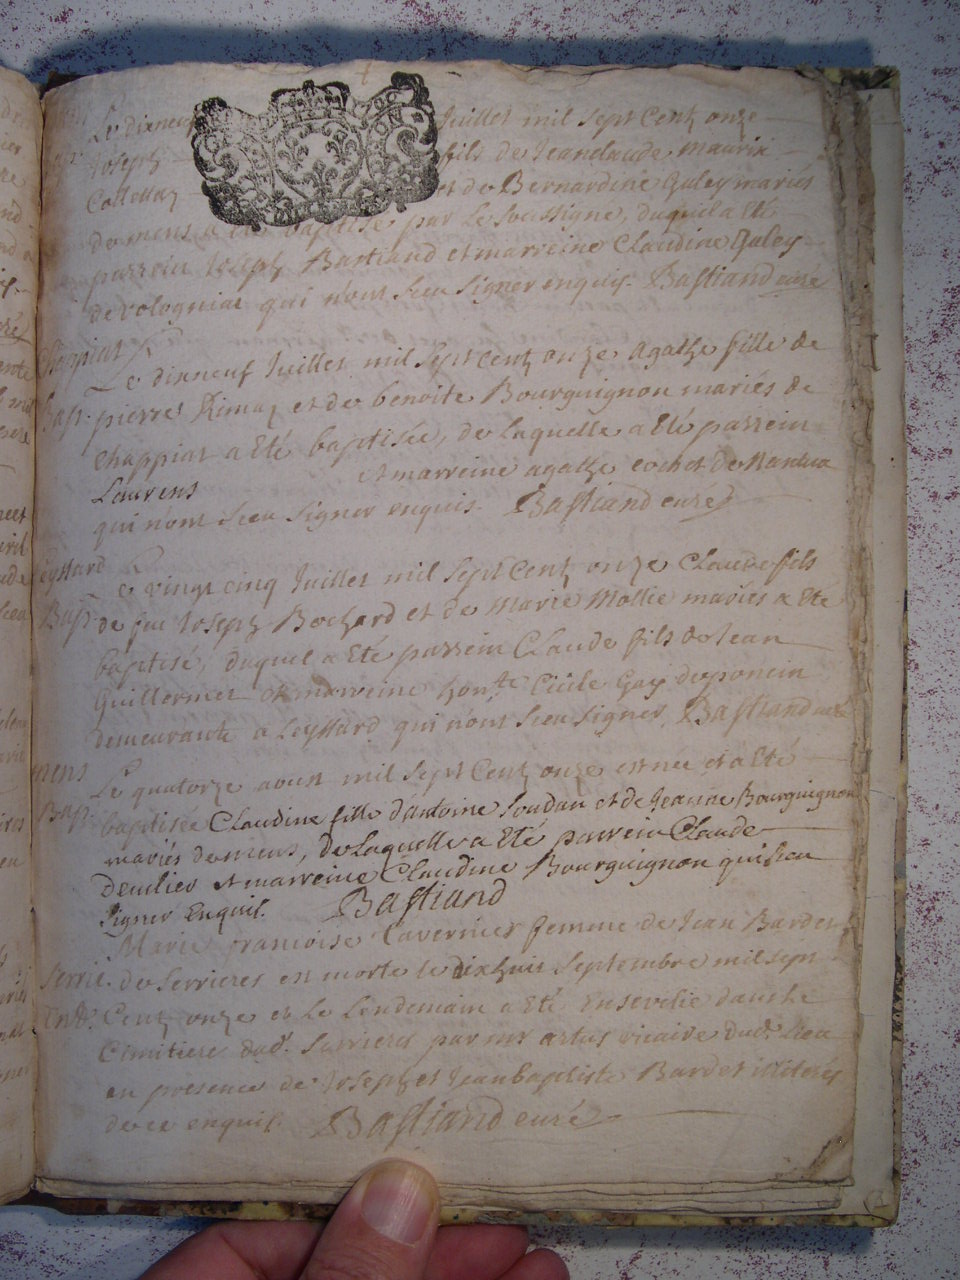 Le dixneuf Juillet mil sept Centz onze
Joseph fils de Jeanclaude maurix
Collettaz et de Bernardine Guley mariés
de mens a eté baptisé par Le Soussigné, duquel a Eté
parrein Joseph Bastiand et marreine Claudine Guley
de vologniat qui n'ont sceu signer enquis. Bastiand curé
Chappiat Le dixneuf Juillet mil sept Centz onze Agathe fille de
Bap. pierre Rimaz et de benoite Bourguignon mariés de
Chappiat a Eté baptisée, de Laquelle a Eté parrein
Laurens et marreine agathe cochet de Nantua
qui n'ont sceu signer enquis. Bastiand curé
Leyssard Le vingt cinq Juillet mil sept Centz onze Claude fils
Bap. de feu Joseph Bochard et de Marie Mollie mariés a Eté
baptisé, duquel a Eté parrein Claude fils de Jean
Guillermet et marreine hon.te Cicile Gay de poncin
demeurante a Leyssard qui n'ont sceu signer Bastiand curé
mens Le quatorze aoust mil sept Centz onze est née et a Eté
Bap. baptisée Claudine fille d'antoine Soudan et de Jeanne Bourguignon
mariés de mens, de Laquelle a Eté parrein Claude
et marreine Claudine Bourguignon qui sceu
signer Enquis. Bastiand
Marie francoise Tavernier femme de Jean Bardet
Serri. de Serrieres en morte le dixhuit Septembre mil sept
Ent.r Centz onze et Le Lendemain a Eté Ensevelie dans Le
Cimitiere dud.t Serrieres par mr artus vicaire dud.t Lieu
en presence de Joseph et Jean baptiste Bardet illiterés
de ce enquis. Bastiand curé